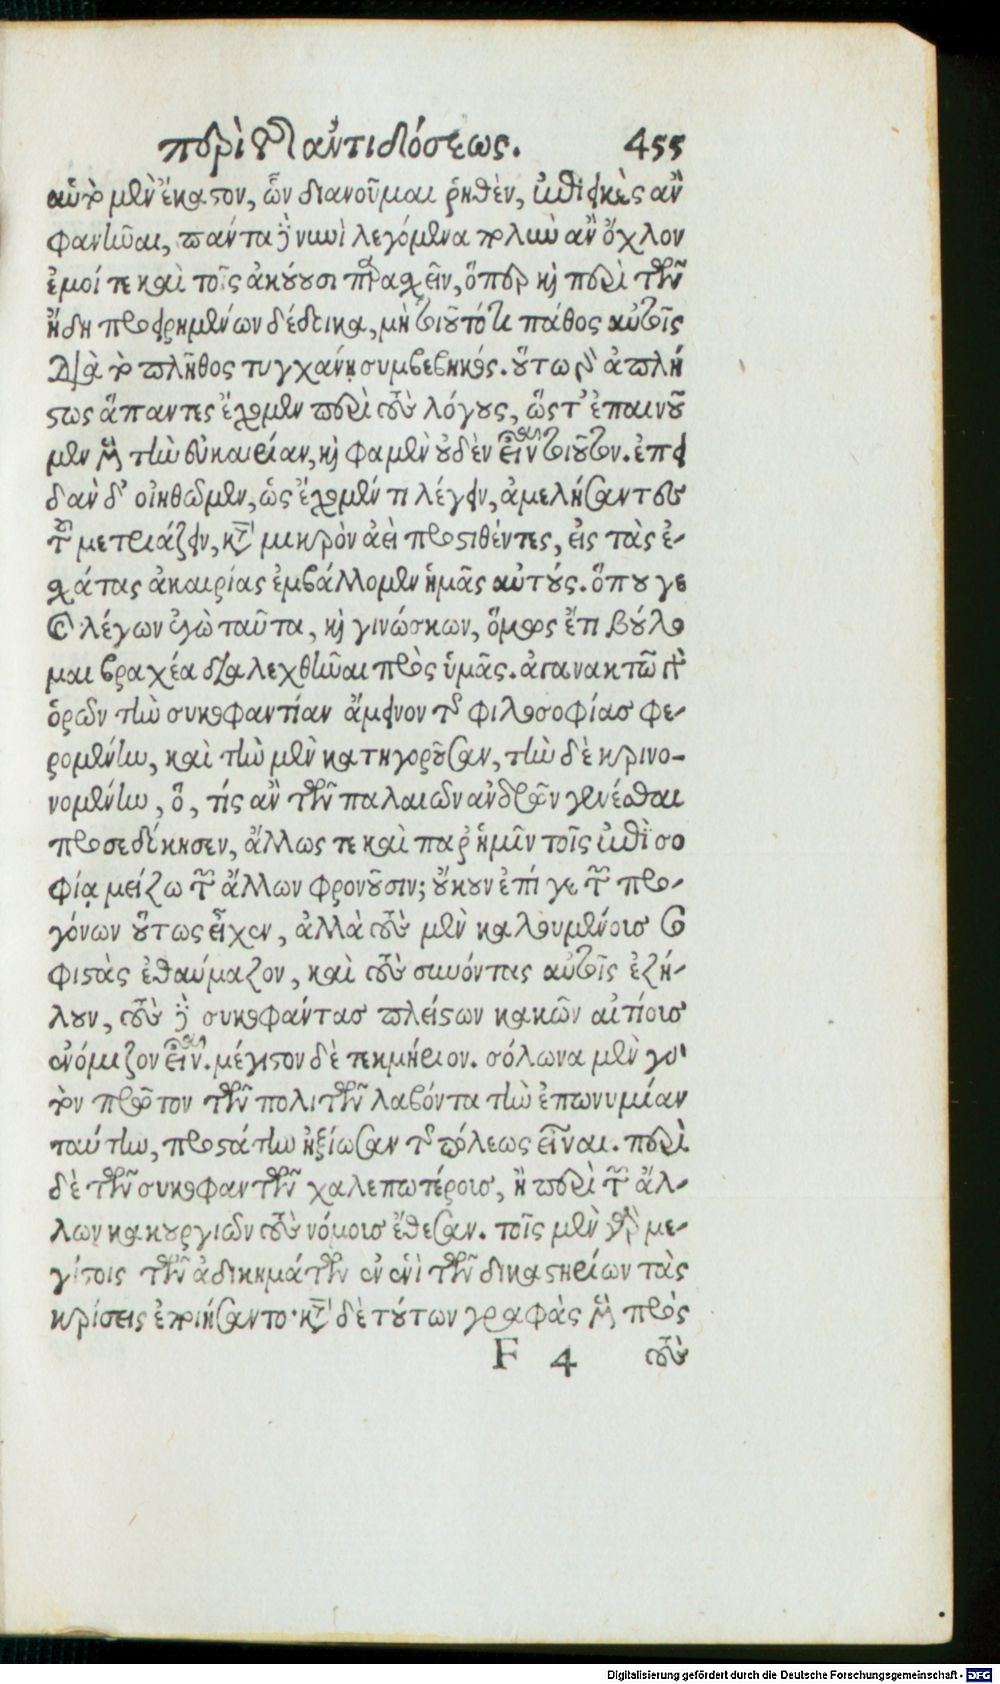 περὶ τῆς ἀντιδόσεως. 455
αὑτὸ μὲν ἕκαστον, ὧν διανοοῦμαι ῥηθὲν, ἐπιεικὲς ἂν
φανῆναι, πάντα δὲ νυνὶ λεγόμενα πολὺν ἂν ὄχλον
ἐμοί τε καὶ τοῖς ἀκούουσι παρασχεῖν, ὅπερ καὶ περὶ τῶν
ἤδη προειρημένων δέδοικα, μή τι τοιοῦτο πάθος αὐτοῖς
διὰ τὸ πλῆθος τυγχάνῃ συμβεβηκός. οὕτω γὰρ ἀπλή
στως ἅπαντες ἔχομεν περὶ τοὺς λόγους, ὥστ' ἐπαινοῦ
μεν μὲν τὴν εὐκαιρίαν, καὶ φαμὲν οὐδὲν εἶναι τοιοῦτον. ἐπει
δὰν δ' οἰηθῶμεν, ὡς ἔχομέν τι λέγειν, ἀμελήσαντες
τοῦ μετριάζειν, κατὰ μικρὸν ἀεὶ προστιθέντες, εἰς τὰς ἐ-
σχάτας ἀκαιρίας ἐμβάλλομεν ἡμᾶς αὐτούς. ὅπου γε
καὶ λέγων ἐγὼ ταῦτα, καὶ γινώσκων, ὅμως ἔτι βούλο
μαι βραχέα διαλεχθῆναι πρὸς ὑμᾶς. ἀγανακτῶ γὰρ
ὁρῶν τὴν συκοφαντίαν ἄμεινον τῆς φιλοσοφίας φε-
ρομένην, καὶ τὴν μὲν κατηγοροῦσαν, τὴν δὲ κρινο-
νομένην, ὅ, τίς ἂν τῶν παλαιῶν ἀνδρῶν γενέσθαι
προσεδόκησεν, ἄλλως τε καὶ παρ' ἡμῖν τοῖς ἐπὶ σο
φίᾳ μεῖζω τῶν ἄλλων φρονοῦσιν; οὔκουν ἐπί γε τῶν προ-
γόνων οὕτως εἶχεν, ἀλλὰ τοὺς μὲν καλουμένοις σο
φιστὰς ἐθαύμαζον, καὶ τοὺς συνόντας αὐτοῖς ἐζή-
λουν, τοὺς δὲ συκοφάντας πλείστων κακῶν αἰτίοις
ἐνόμιζον εἶναι. μέγιστον δὲ τεκμήριον. σόλωνα μὲν γὰρ
τὸν πρῶτον τῶν πολιτῶν λαβόντα τὴν ἐπωνυμίαν
ταύτην, προστάτην ἠξίωσαν τῆς πόλεως εἶναι. περὶ
δὲ τῶν συκοφαντῶν χαλεπωτέροις, ἢ περὶ τῶν ἄλ-
λων κακουργιῶν τοὺς νόμοις ἔθεσαν. τοῖς μὲν γὰρ με-
γίστοις τῶν ἀδικημάτων ἐν ἑνὶ τῶν δικαστηρίων τὰς
κρίσεις ἐποιήσαντο· κατὰ δὲ τούτων γραφὰς μὲν πρὸς
F 4 τοὺς
Digitalisierung gefördert durch die Deutsche Forschungsgemeinschaft - DFG